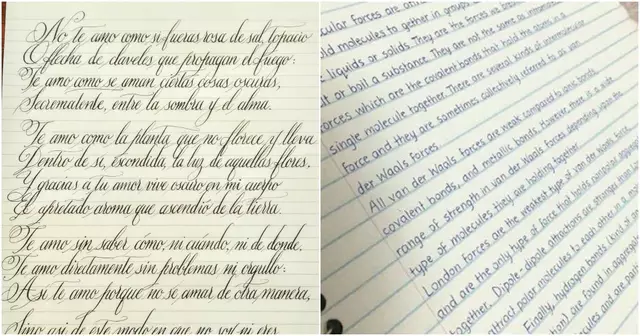 No te amo como si fueras rosa de sal, topacio
O flecha de claveles que propagan el fuego:
Te amo como se aman ciertas cosas oscuras,
Secretamente, entre la sombra y el alma.
Te amo como la planta que no florece y lleva
Dentro de sí, escondida, la luz de aquellas flores,
Y gracias a tu amor vive oscuro en mi cuerpo
El apretado aroma que ascendió de la tierra.
Te amo sin saber cómo, ni cuándo, ni de donde,
Te amo directamente sin problemas ni orgullo:
Así te amo porque no sé amar de otra manera,
Sino así de este modo en que no soy ni eres
forces are
molecules to gether in groups
liquids or solids. They are the forces we break
or boil a substance. They are not the same as
which are the covalent bonds that hold the atoms in a
single molecule together. There are several kinds of intermolecular
force and they are sometimes collectively referred to as van
der Waals forces.
All van der Waals forces are weak compared to ionic bonds,
covalent bonds, and metallic bonds. However, there is a wide
range of strength in van der Waals forces depending upon the
type of molecules they are holding together.
London forces are the weakest type of van der Waals force
and are the only type of force that holds nonpolar
together. Dipole-dipole attractions are stronger than
attract polar molecules to each other in a
Finally, hydrogen bonds (kind of
are found in
molecules and are